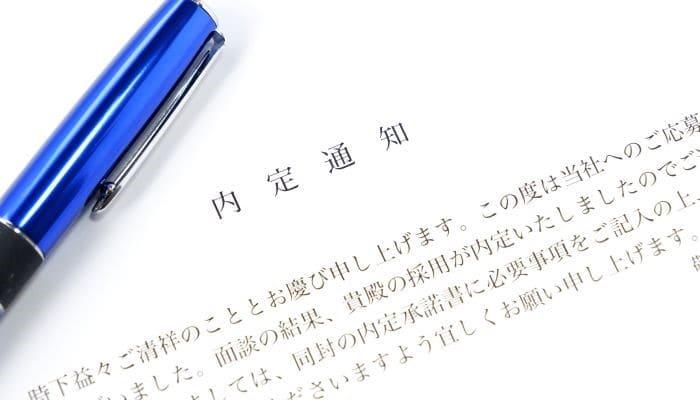 内定通知
時下益々ご清祥のこととお慶び申し上げます。この度は当社へのご応募
いました。面談の結果、貴殿の採用が内定いたしましたのでご
ましては、同封の内定承諾書に必要事項をご記入の上
くださいますよう宜しくお願い申し上げます。